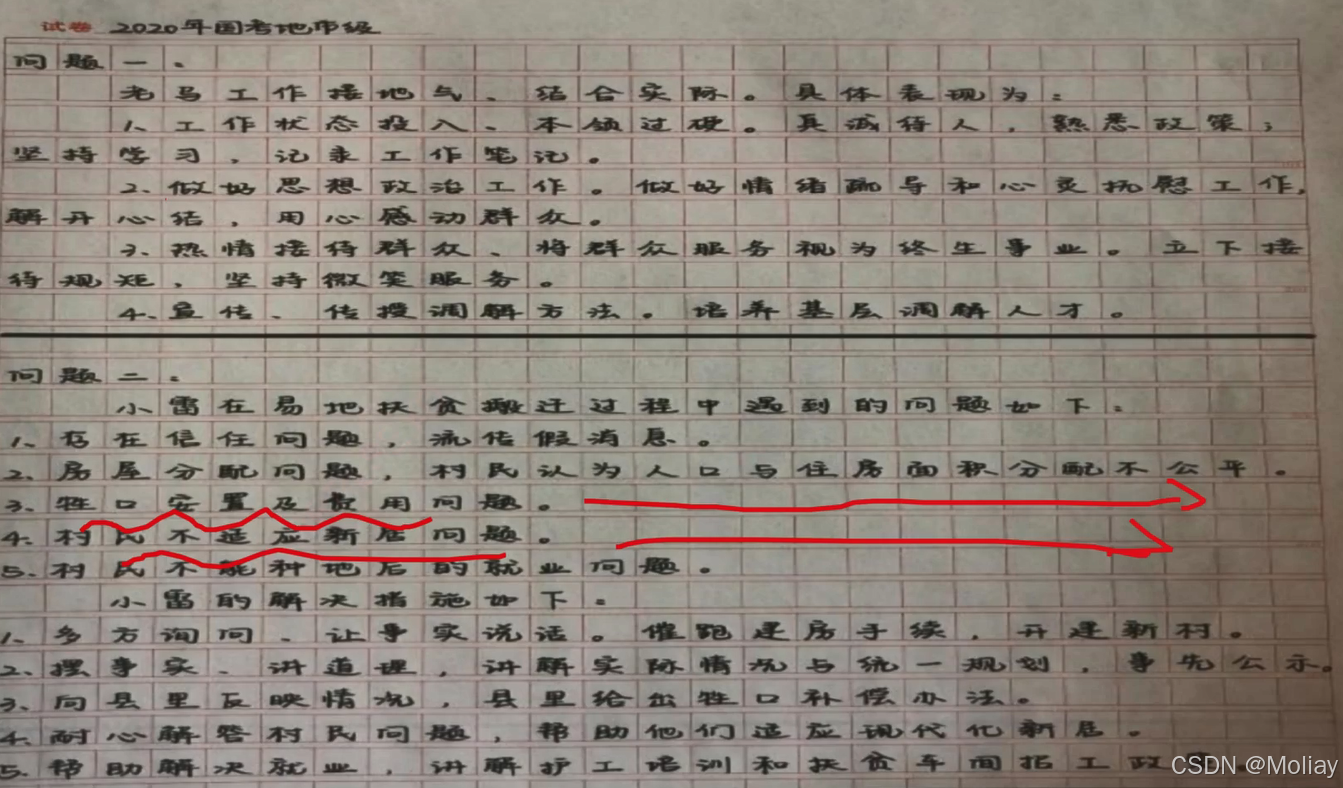 试卷 2020年国考地市级
问题一、
老马工作接地气、结合实际。具体表现为:
1、工作状态投入、本领过硬。真诚待人,熟悉政策;
坚持学习,记录工作笔记。
2、做好思想政治工作。做好情绪疏导和心灵抚慰工作,
解开心结,用心感动群众。
3、热情接待群众、将群众服务视为终生事业。立下接
待规矩,坚持微笑服务。
4、宣传、传授调解方法。培养基层调解人才。
问题二:
小雷在易地扶贫搬迁过程中遇到的问题如下:
1、存在信任问题,流传假消息。
2、房屋分配问题,村民认为人口与住房面积分配不公平。
3、牲口安置及费用问题。
4、村民不适应新居问题。
5、村民不能种地后的就业问题。
小雷的解决措施如下:
1、多方询问、让事实说话。催跑建房手续,开建新村。
2、摆事实、讲道理,讲解实际情况与统一规划,事先公示。
3、向县里反映情况,县里给出牲口补偿办法。
4、耐心解答村民问题,帮助他们适应现代化新居。
5、帮助解决就业,讲解护工培训和扶贫车间招工政
CSDN @Moliay